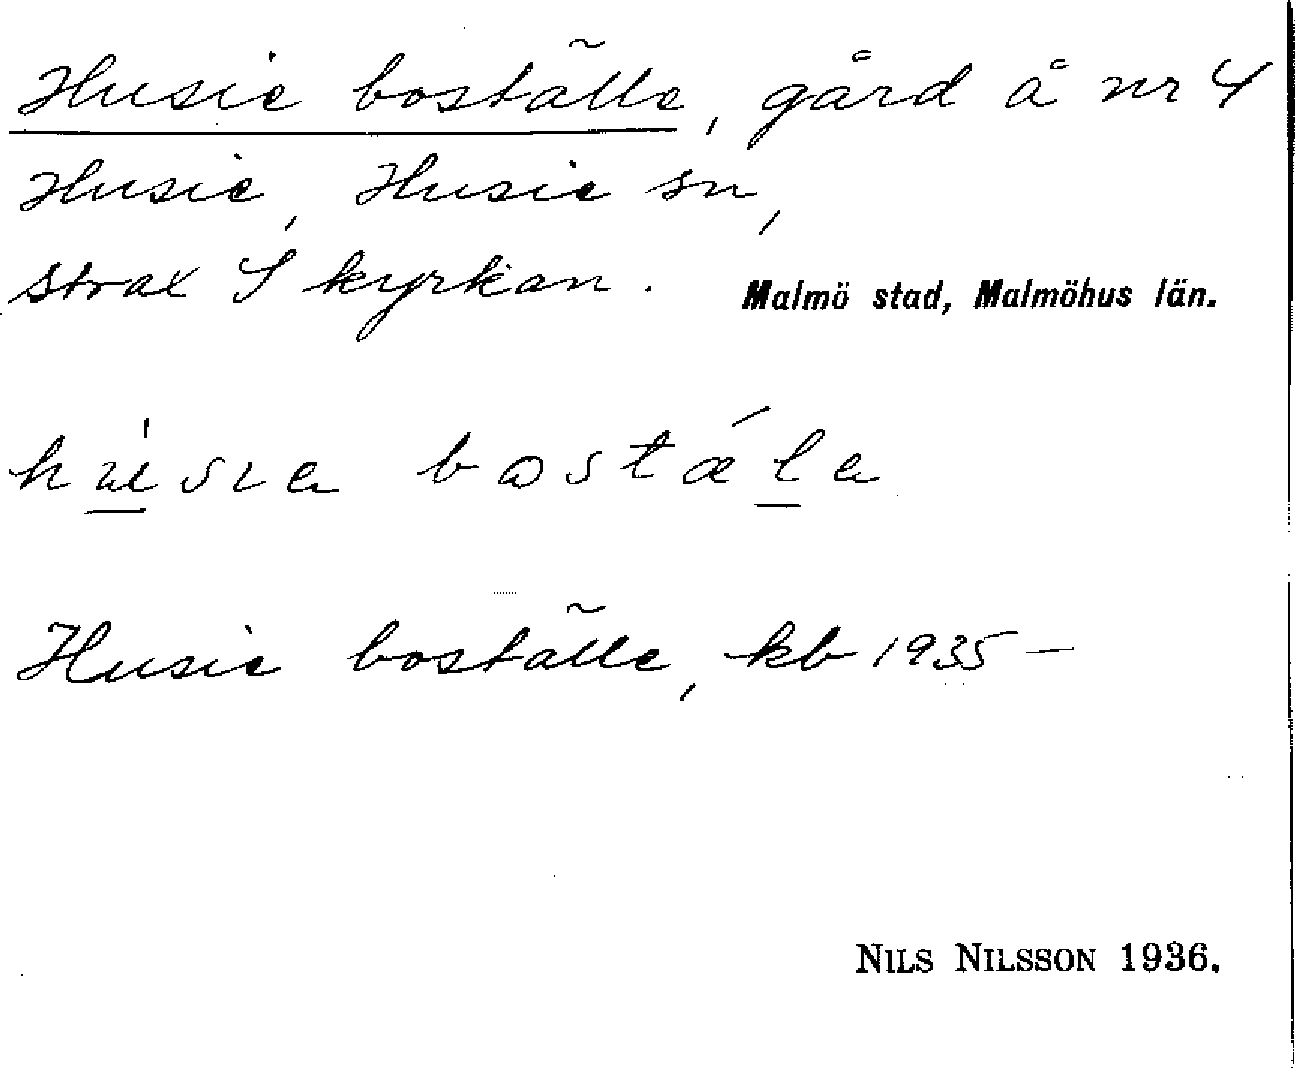 Husie boställe, gård å nr 4
Husie, Husie sn,
strax S kyrkan. Malmö stad, Malmöhus län.
Husie boställe, kb 1935–
NILS NILSSON 1936.